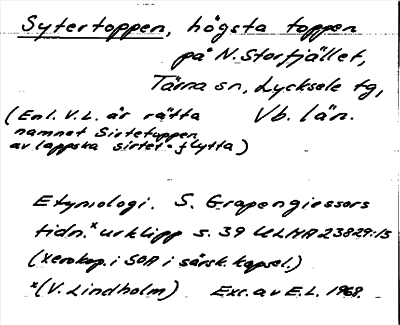 Sytertoppen, högsta toppen
på N. Storfjället,
Tärna sn, Lycksele tg,
(Enl. V.L. är rätta Vb. län.
namnet Sirtetoppen
av lappska sirtet = flytta)
Etymologi. S. Grapengiessers
tidn.x urklipp s. 39 ULMA 23829:15
(Xerokop. i SOA i särsk. kapsel.)
x(V. Lindholm) Exc. av E.L. 1968.